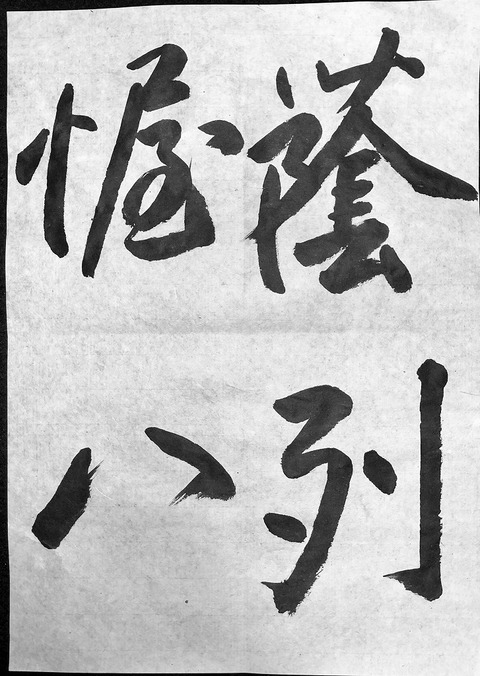 蔭列
幄八